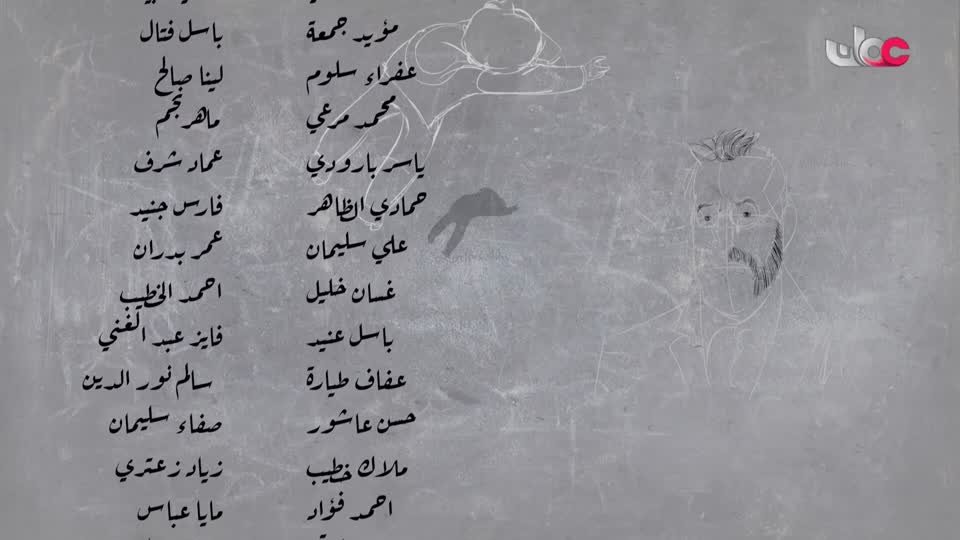 مؤيد جمعة باسل فتال
عفراء سلوم لينا صالح
محمد مرعي ماهر نجم
ياسر بارودي عماد شرف
حمادي الظاهر فارس جنيد
علي سليمان عمر بدران
غسان خليل احمد الخطيب
باسل عنيد فايز عبد الغني
عفاف طيارة سالم نور الدين
حسن عاشور صفاء سليمان
ملاك خطيب زياد زعتري
احمد فؤاد مايا عباس
عمان